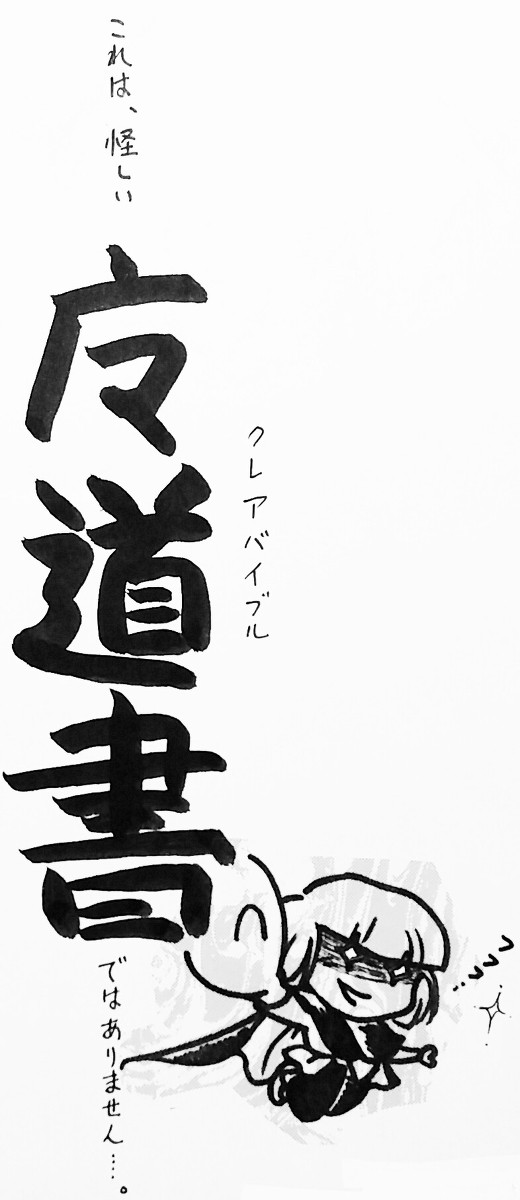 これは、怪しい
⿸广マ道書
クレアバイブル
ではありません…。
フフフ…